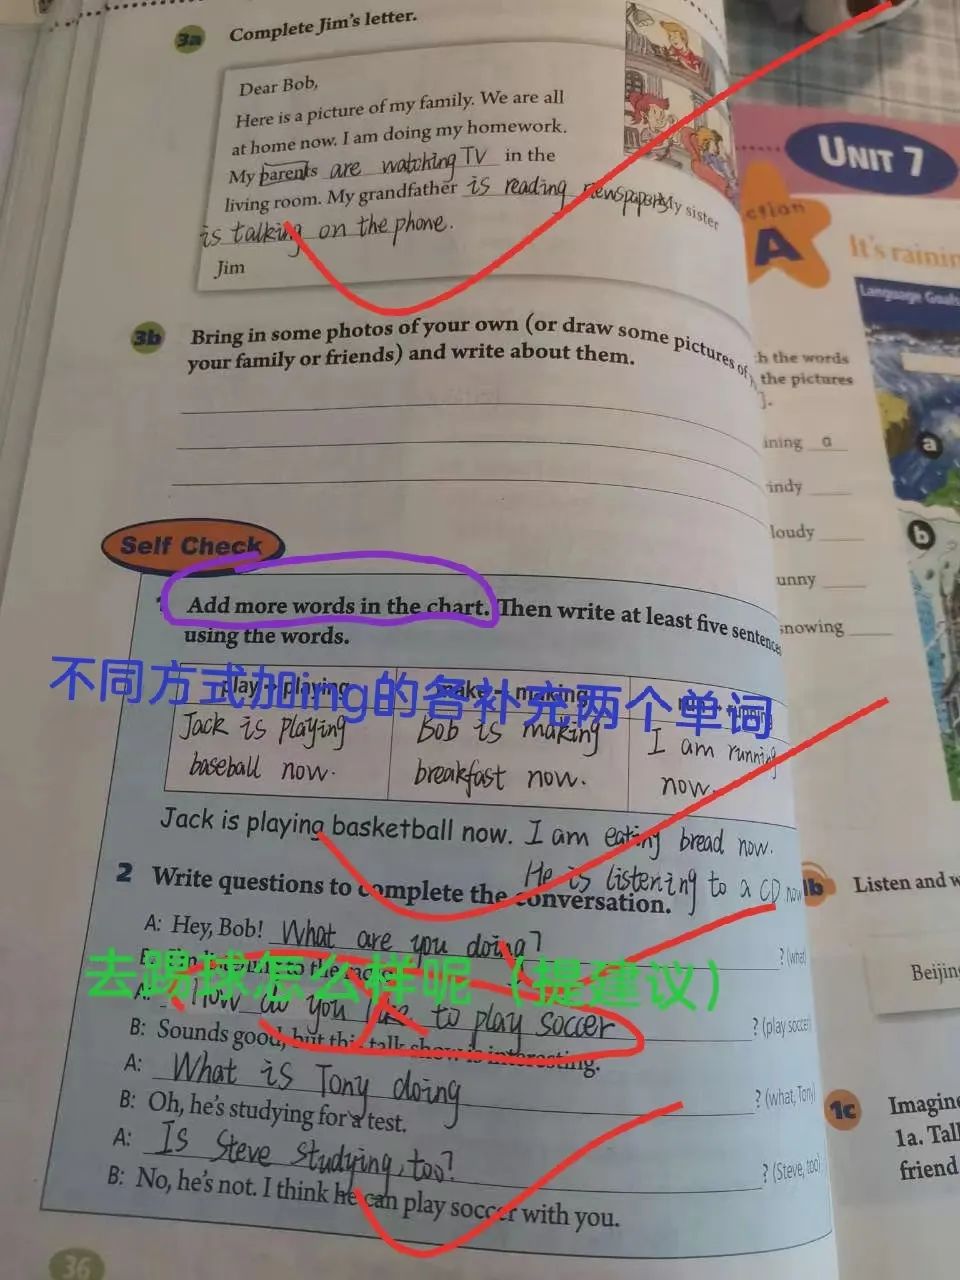 3a Complete Jim's letter.
Dear Bob,
Here is a picture of my family. We are all
at home now. I am doing my homework.
My parents are watching TV in the
living room. My grandfather is reading newspapers My sister
is talking on the phone.
Jim
3b Bring in some photos of your own (or draw some pictures of
your family or friends) and write about them.
Self Check
Add more words in the chart. Then write at least five sentences
using the words.
不同方式加ing的各补充两个单词
play playing make making
Jack is playing
baseball now.
Bob is making
breakfast now.
I am running
now.
Jack is playing basketball now. I am eating bread now.
He is listening to a CD now
2 Write questions to complete the conversation.
A: Hey, Bob! What are you doing? ? (what)
去踢球怎么样呢（提建议）
A: How do you like to play soccer ? (play soccer)
B: Sounds good, but this talk show is interesting.
A: What is Tony doing ? (what, Tony)
B: Oh, he's studying for a test.
A: Is Steve studying, too? ? (Steve, too)
B: No, he's not. I think he can play soccer with you.
36
UNIT 7
ction
A
It's rainin
Language Goals
h the words
the pictures
].
ining a
indy
loudy
unny
snowing
a
b
1b Listen and w
Beijin
1c Imagine
1a. Tal
friend